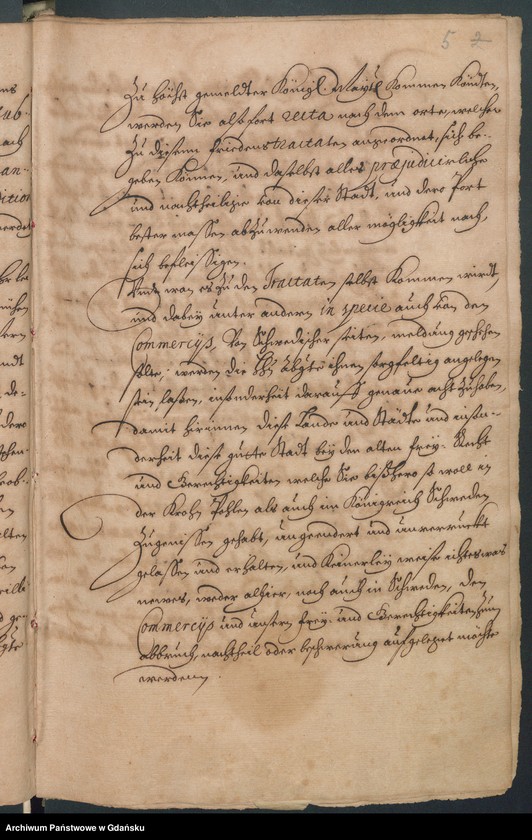 5 2
Zu höchst gemeldter Königl. Maytt. kommen könten,
werden Sie alsofort recta nach dem orte, welcher
zu diesenn Friedens tractaten angeordnet, sich be-
geben können, und daselbst alles præjudicirliche
und nachtheilige von dieser Stadt, und dero Port
bester massen abzuwenden aller mögligkeit nach,
sich befleissigen.
wan es zu den Tractaten selbst kommen wirdt,
und dabey unter andern in specie auch von den
Commercijs, von Schwedischer seiten, meldung geschehen
solte, werden die ihnen sorgfeltig angelegen
sein lassen, insonderheit darauff genaue acht zuhaben,
damit hierinnen diese Lande und Städte und inson-
derheit diese gutte Stadt bey den alten frey- Recht
und Gerechtigkeiten welche Sie bishero so woll in
der Krohn Pohlen als auch im Königreich Schweden
zugenissen gehabt, ungeendert und unverruckt
gelassen und erhalten, und keinerley weise ichteswas
newes, weder alhier, noch auch in Schweden, den
Commercijs und unsern frey- und Gerechtigkeiten zum
abbruch, nachtheil oder beschwerung auffgelegt möchte
werdenn.
Archiwum Państwowe w Gdańsku